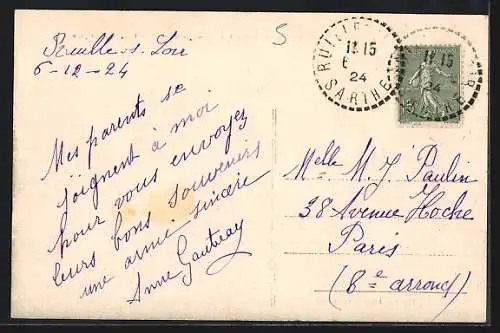 Ruillé-s-Loir
6-12-24
5
RUILLE
11 15
6
24
SARTHE
11 15
24
Mes parents se
joignent à moi
pour vous envoyez
leurs bons souvenirs
une amie sincère
Anne Gautray
Melle M. J. Paulin
38 Avenue Hoche
Paris
(8e arrond)